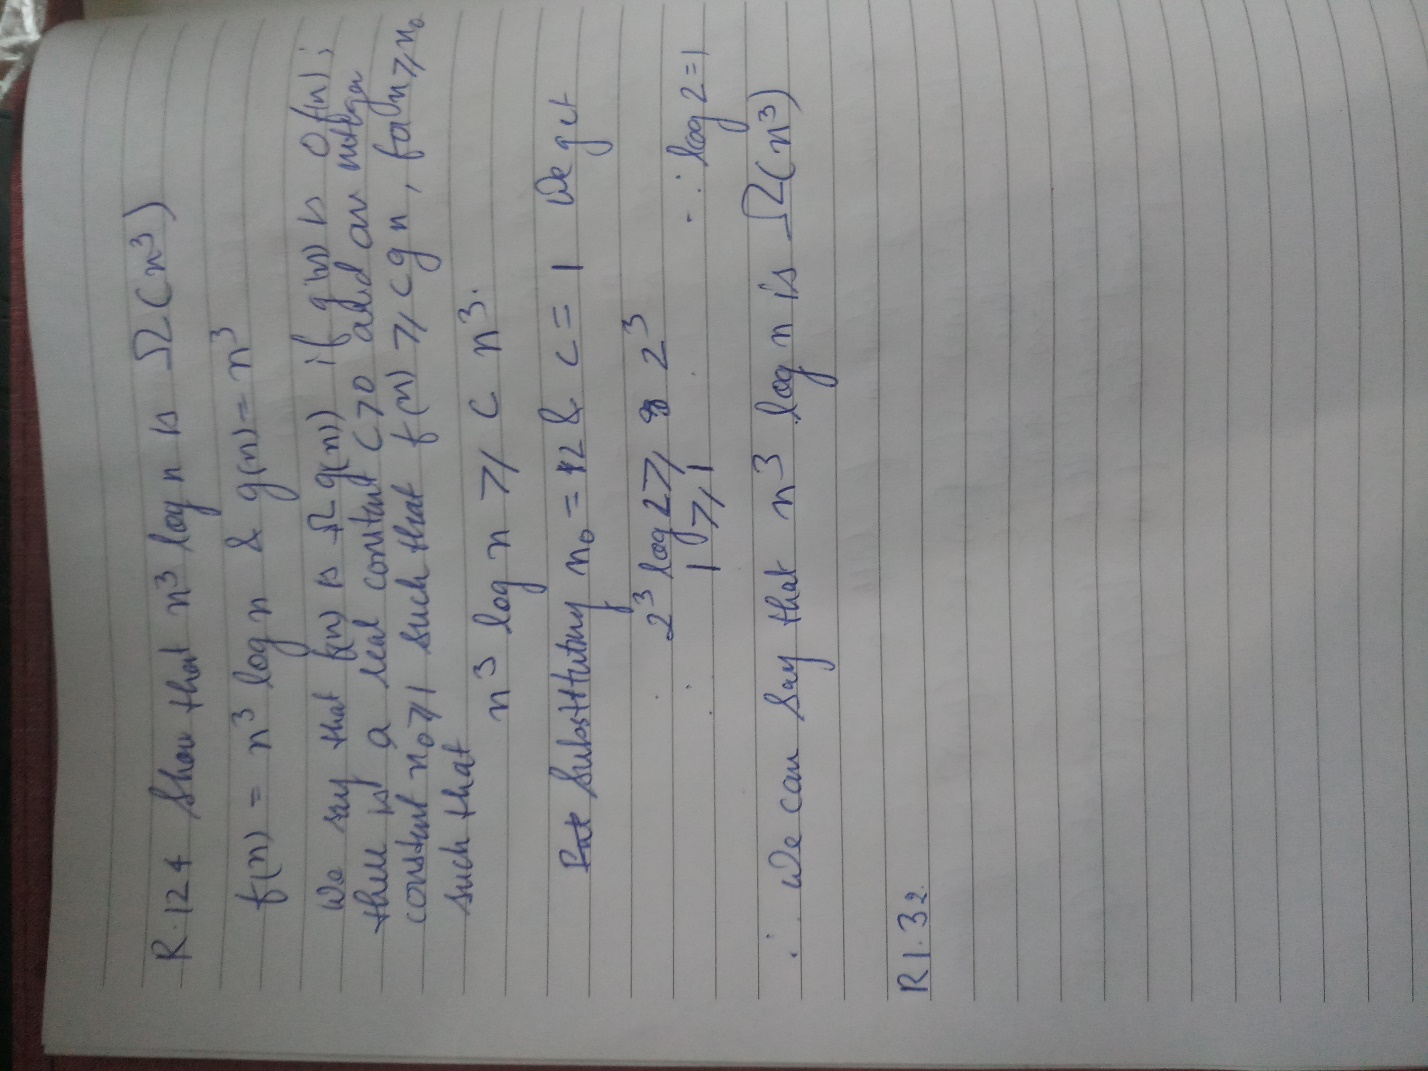 R.124 Show that n³ log n is Ω(n³)
f(n) = n³ log n & g(n) = n³
We say that f(n) is Ω g(n)) if g(n) is O f(n);
there is a real constant c>0 and an integer
constant n₀≥1 such that f(n) ≥ cg n, for n ≥ n₀
such that
n³ log n ≥ c n³.
substituting n₀ = 2 & c = 1 we get
2³ log 2 ≥ 2³
1 ≥ 1 ∵ log 2 = 1
∴ We can say that n³ log n is Ω(n³)
R1.32